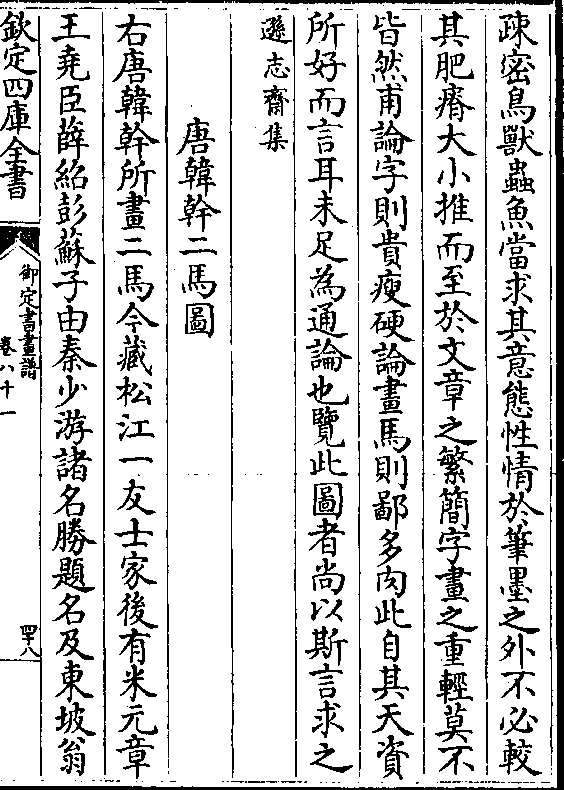 疎密鳥獸蟲魚當求其意態性情於筆墨之外不必較
其肥瘠大小推而至於文章之繁簡字畫之重輕莫不
皆然甫論字則貴瘦硬論畫馬則鄙多肉此自其天資
所好而言耳未足為通論也覽此圖者尚以斯言求之
遜志齋集
唐韓幹二馬圖
右唐韓幹所畫二馬今藏松江一友士家後有米元章
王堯臣薛紹彭蘇子由秦少游諸名勝題名及東坡翁
欽定四庫全書
御定書畫譜
卷八十一
四十八